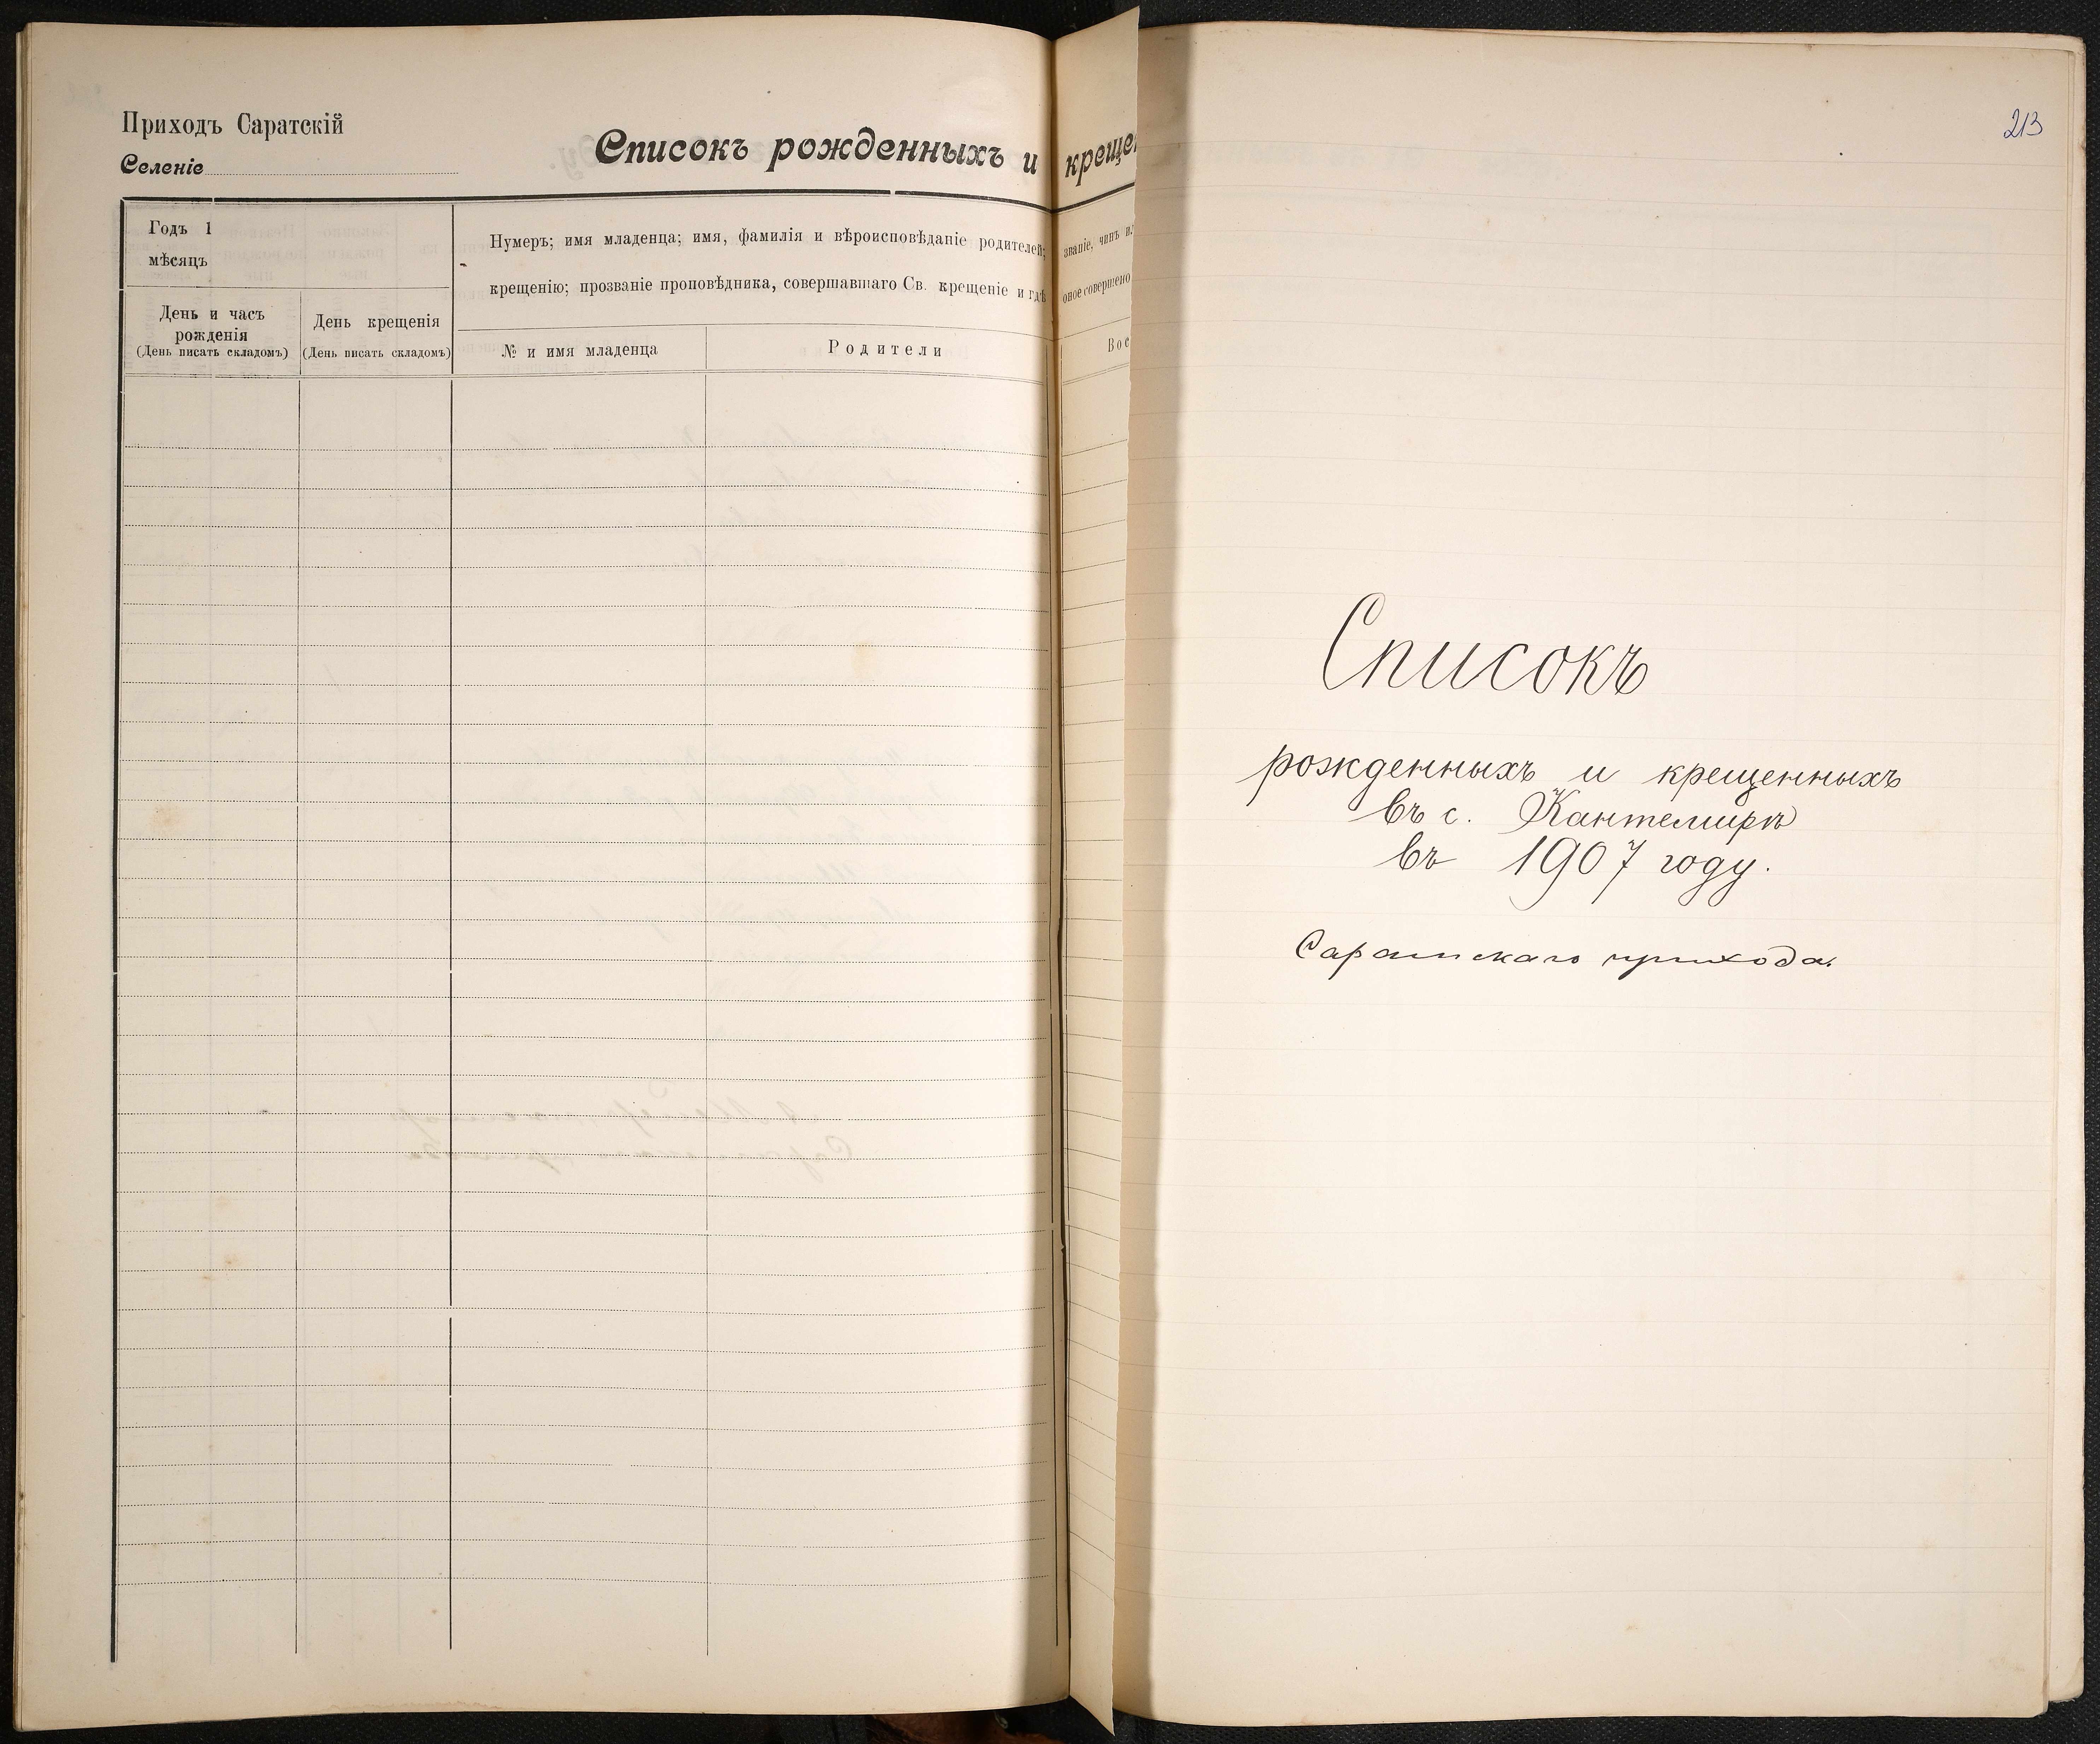 Приходъ Саратскій
Селеніе
Списокъ рожденныхъ и
креще
Годъ 1
мѣсяцъ
Нумеръ; имя младенца; имя, фамилія и вѣроисповѣданіе родителей;
званіе, чинъ
крещенію; прозваніе проповѣдника, совершавшаго Св. крещеніе и гдѣ
оное совершено
День и часъ
рожденія
(День писать складомъ)
День крещенія
(День писать складомъ)
№ и имя младенца
Родители
Вос
213
Списокъ
рожденныхъ и крещенныхъ
въ с. Кантемиръ
въ 1907 году.
Саратскаго прихода.